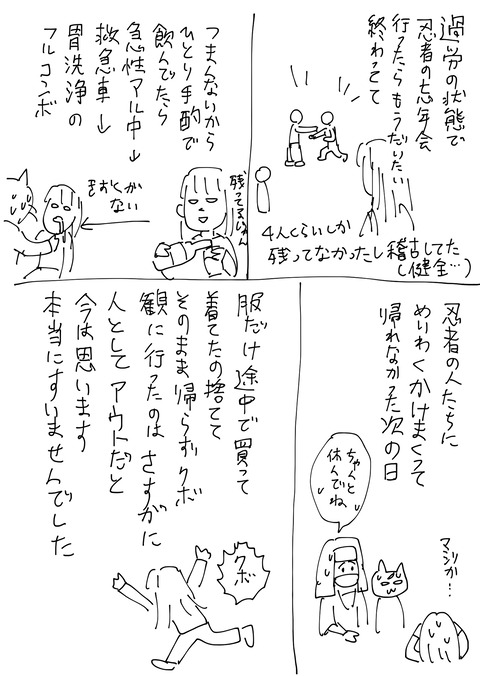 過労の状態で
忍者の忘年会
行ったらもうだいたい
終わってて
4人くらいしか
残ってなかったし稽古してた
(健全…)
つまんないから
ひとり手酌で
飲んでたら
急性アル中→
救急車→
胃洗浄の
フルコンボ
残ってるじゃん
きおくが
ない
忍者の人たちに
めいわくかけまくって
帰れなかった次の日
ちゃんと
休んでね
マジか…
服だけ途中で買って
着てたの捨てて
そのまま帰らずクボ
観に行ったのはさすがに
人としてアウトだと
今は思います
本当にすいませんでした
クボ